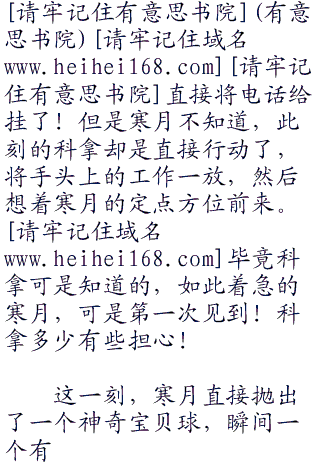 [请牢记住有意思书院](有意
思书院)[请牢记住域名
www.heihei168.com][请牢记
住有意思书院]直接将电话给
挂了！但是寒月不知道，此
刻的科拿却是直接行动了，
将手头上的工作一放，然后
想着寒月的定点方位前来。
[请牢记住域名
www.heihei168.com]毕竟科
拿可是知道的，如此着急的
寒月，可是第一次见到！科
拿多少有些担心！
这一刻，寒月直接抛出
了一个神奇宝贝球，瞬间一
个有